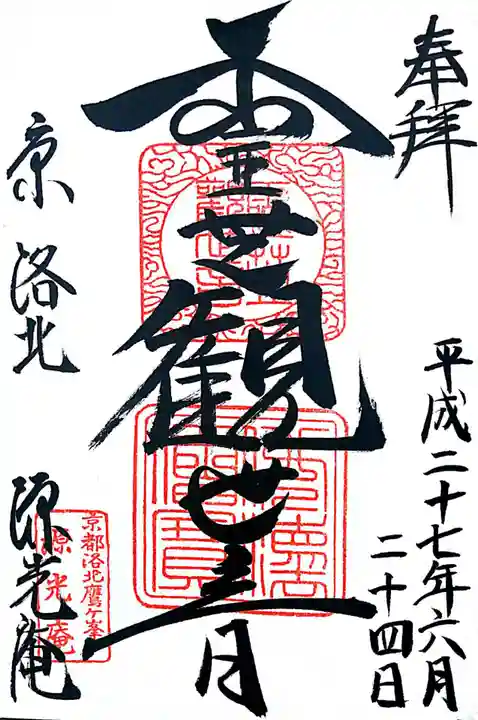 奉拝
平成二十七年六月
二十四日
霊芝觀世音
京 洛北 源光庵
京都洛北鷹ヶ峯
源光庵